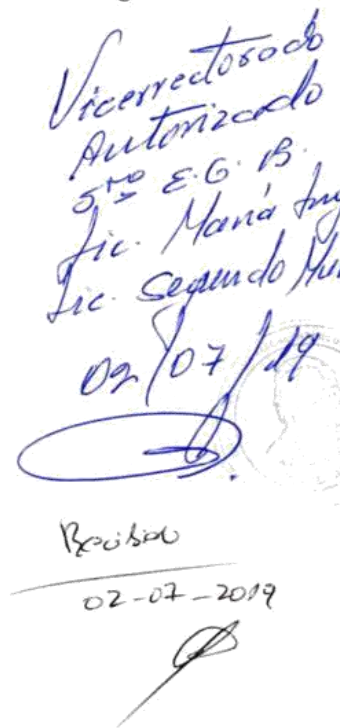 Vicerrectorado
Autorizado
5to E.G.B.
Lic. María
Lic. Segundo
02/07/19
Recibido
02-07-2019